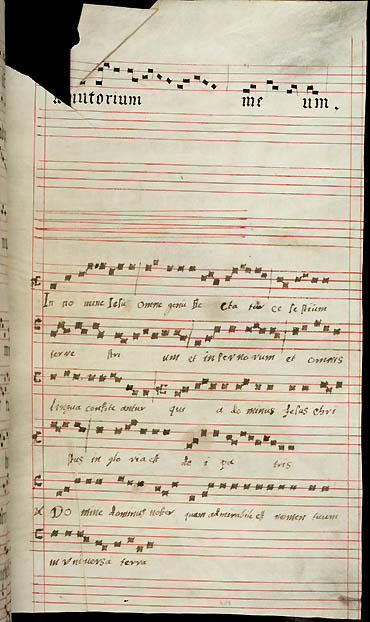 adiutorium me um.
In no mine Iesu omne genu fle cta tur ce lestium
terre stri um et infernorum et omnis
lingua confite antur qui a dominus Iesus chri
stus in glo ria est de i pa tris
Do mine dominus noster quam admirabile est nomen tuum
in vniversa terra